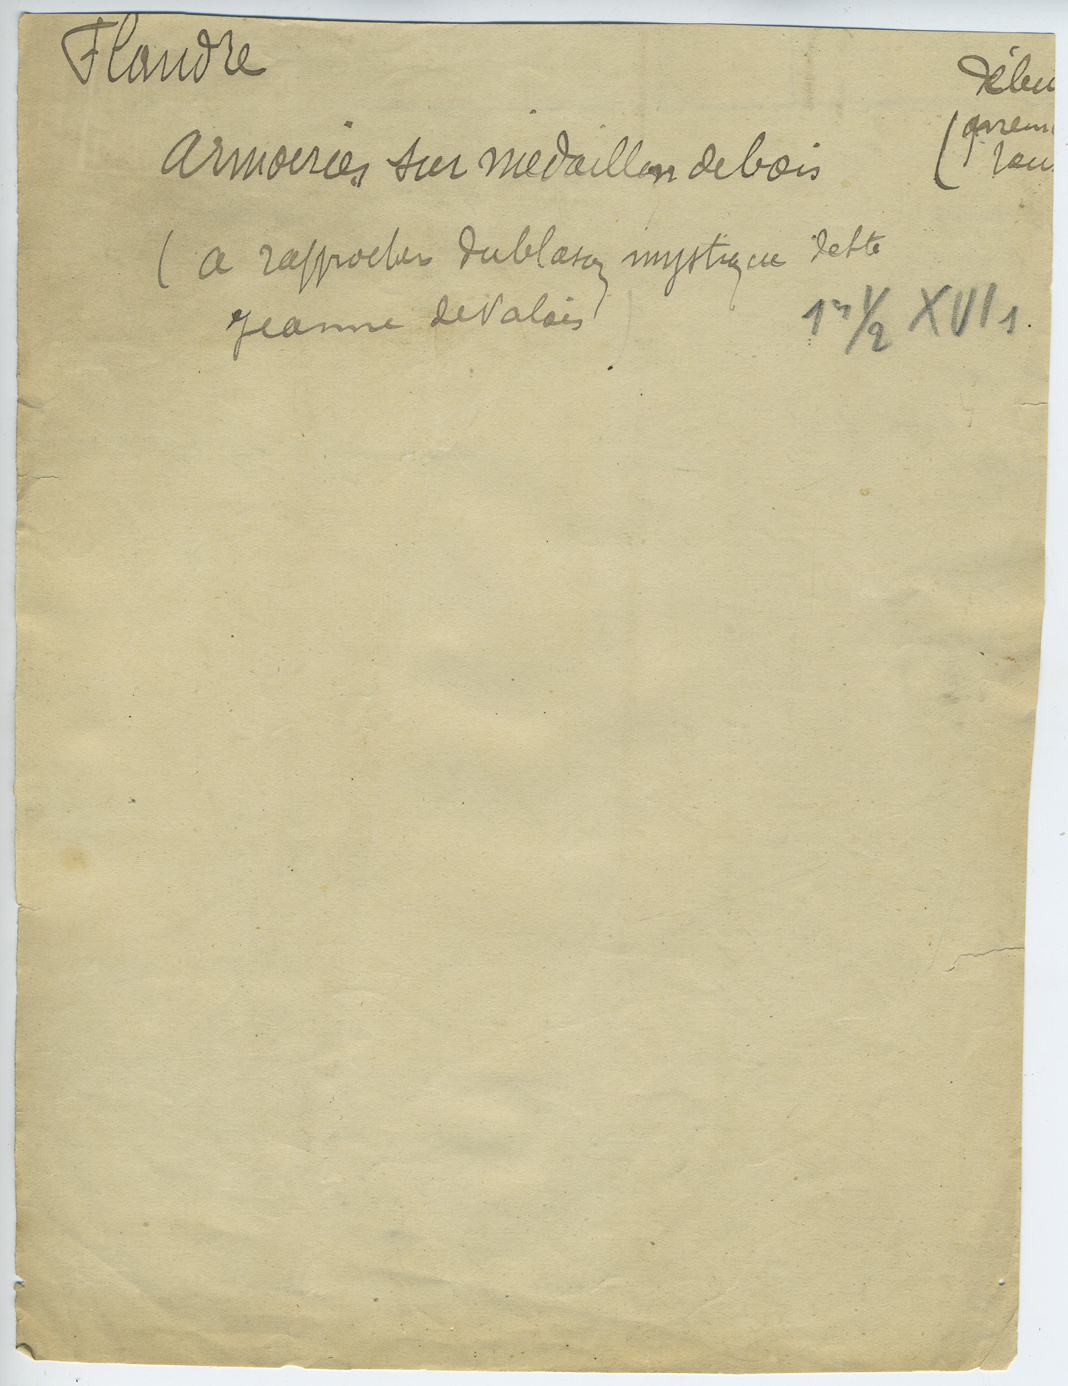 Flandre
Début
Armoiries sur médaillon de bois
(
( a rapprocher du blason mystique de Ste
Jeanne de Valois )
1re 1/2 XVI s.